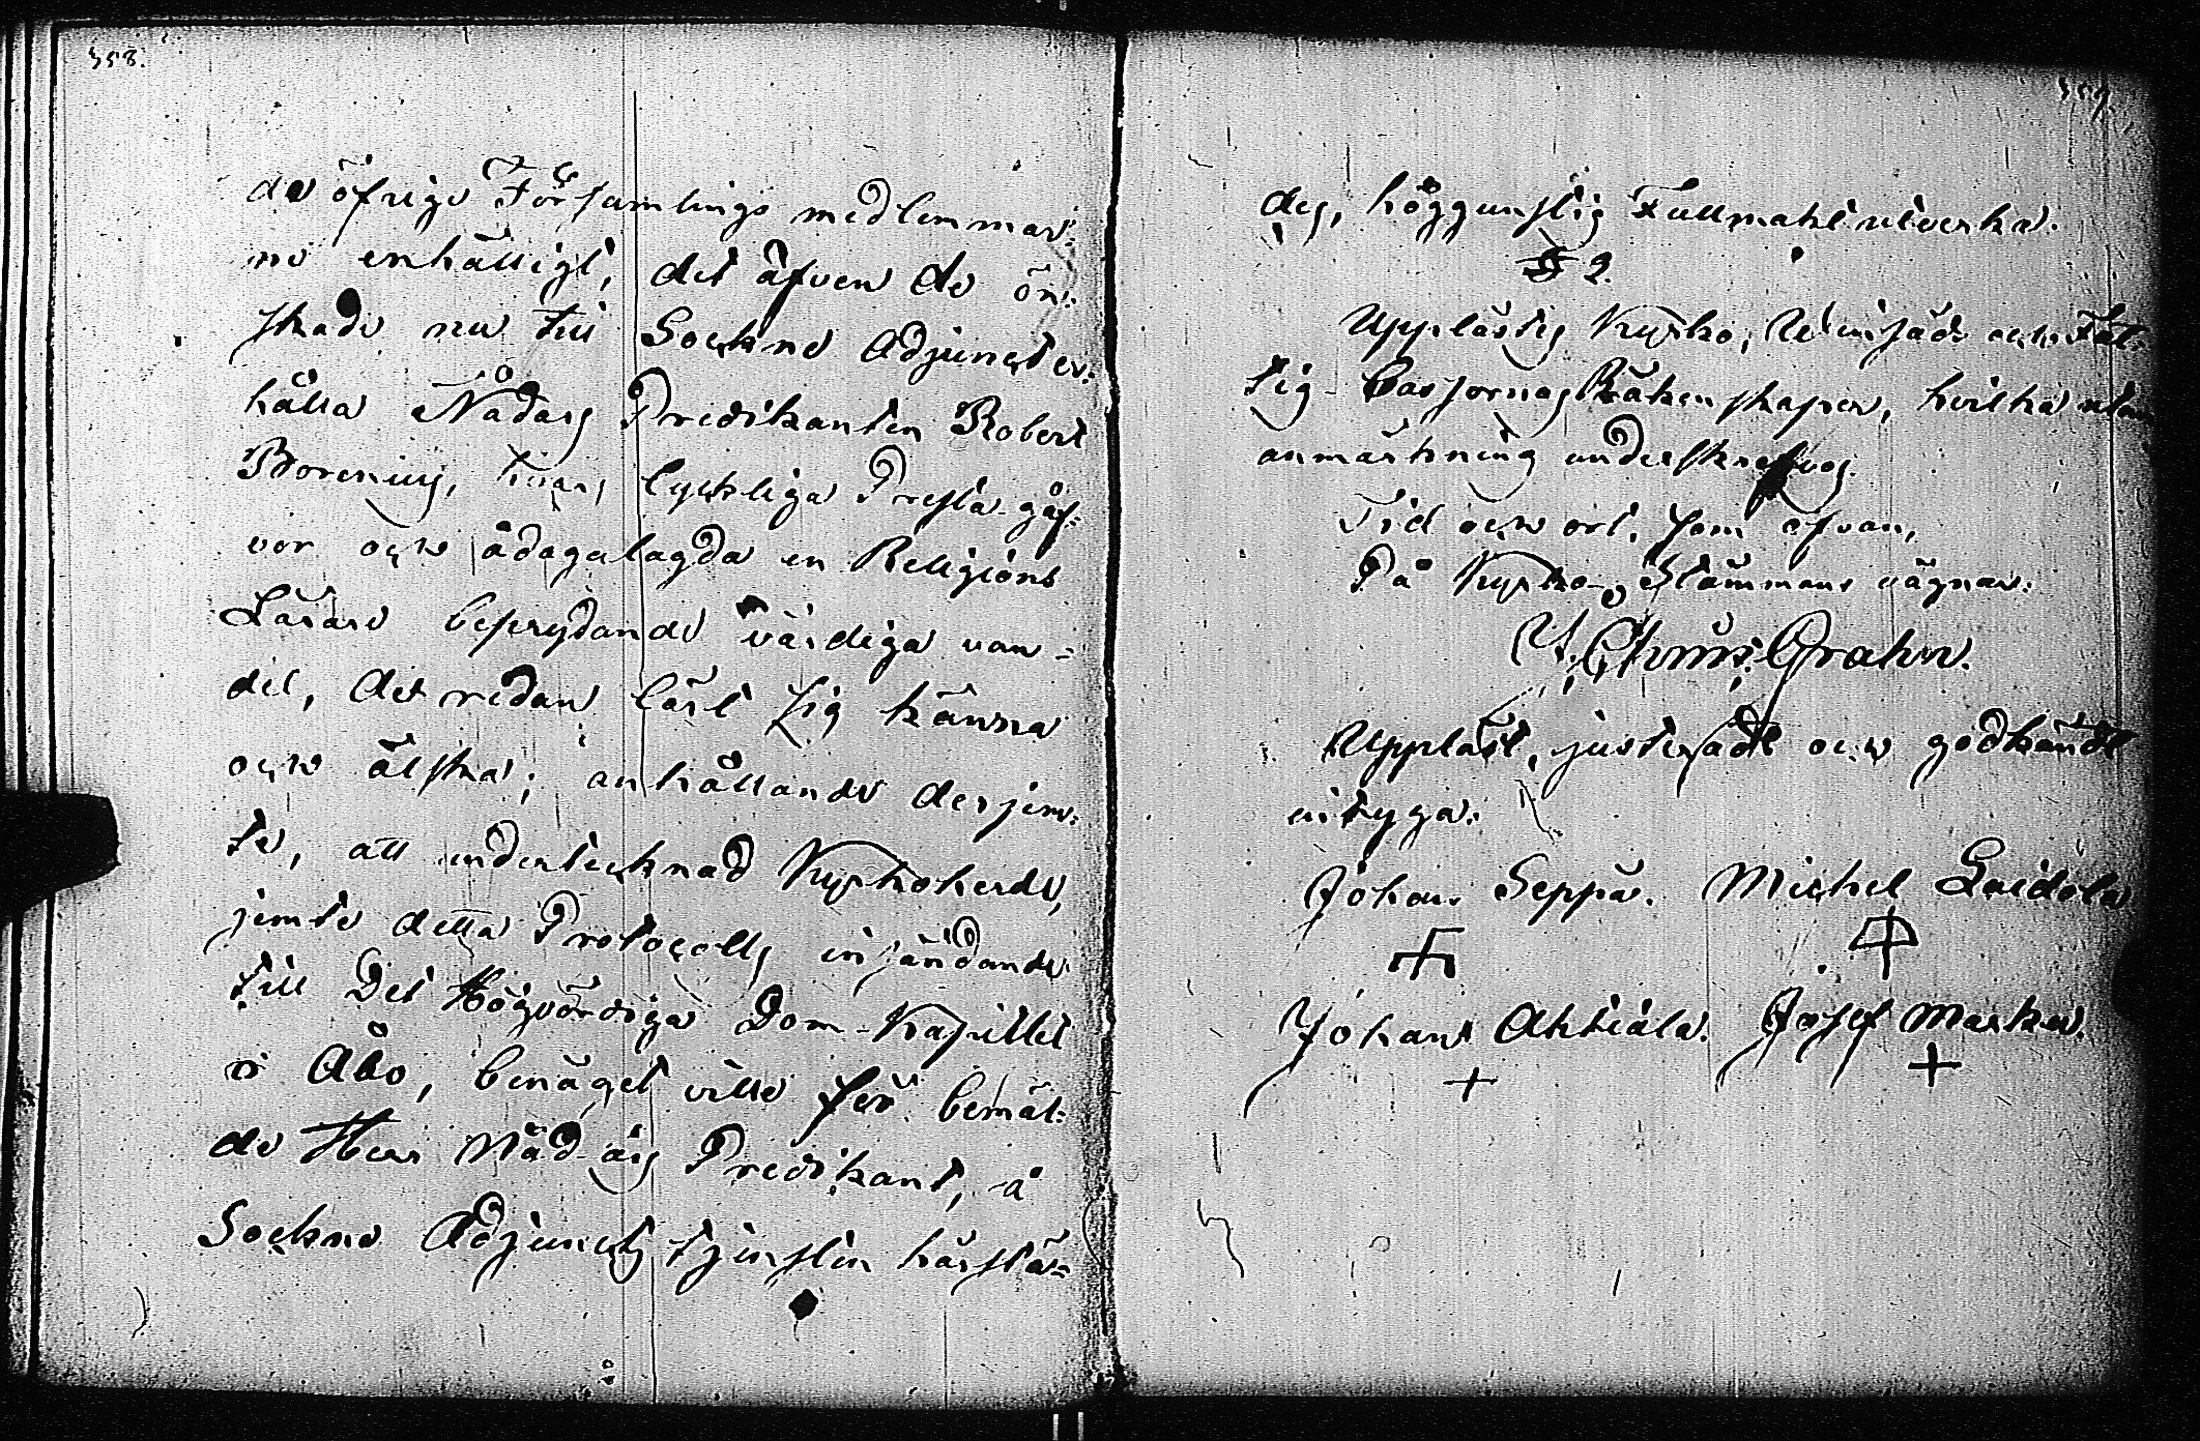 358.
de öfrige Församlings medlemmar:
ne enhälligt, det äfven de ön:
skade nu till Sockne Adjunct er:
hålla Nådårs Predikanten Robert
Borenius, hvars lyckliga Presta-gåf:
vor och ådagalagda en Religions
Lärare beprydande värdiga van-
del, de redan lärt sig känna
och älska; anhållande derjem:
te, att undertecknad Kyrkoherde,
jemte detta Protocolls insändande
till Det Högvördiga Dom-Kapitlet
i Åbo, benäget ville för bemäl:
de Herr Nåd-års Predikant, å
Sockne Adjuncts tjensten härstä=
359.
des, höggunstig Fullmakt utverka.
§ 2.
Upplästes Kyrko, och Fat:
tig-Cassornas Räkenskaper, hvilka utan
anmärkning underskrefvos.
Tid och ort, som ofvan,
På Kyrko-Stämmans vägnar:
Grahn.
Uppläst, justeradt och godkändt
intyga:
Johan Seppä. Michel Laidola
Johan Ahtiala. Josef Marken.